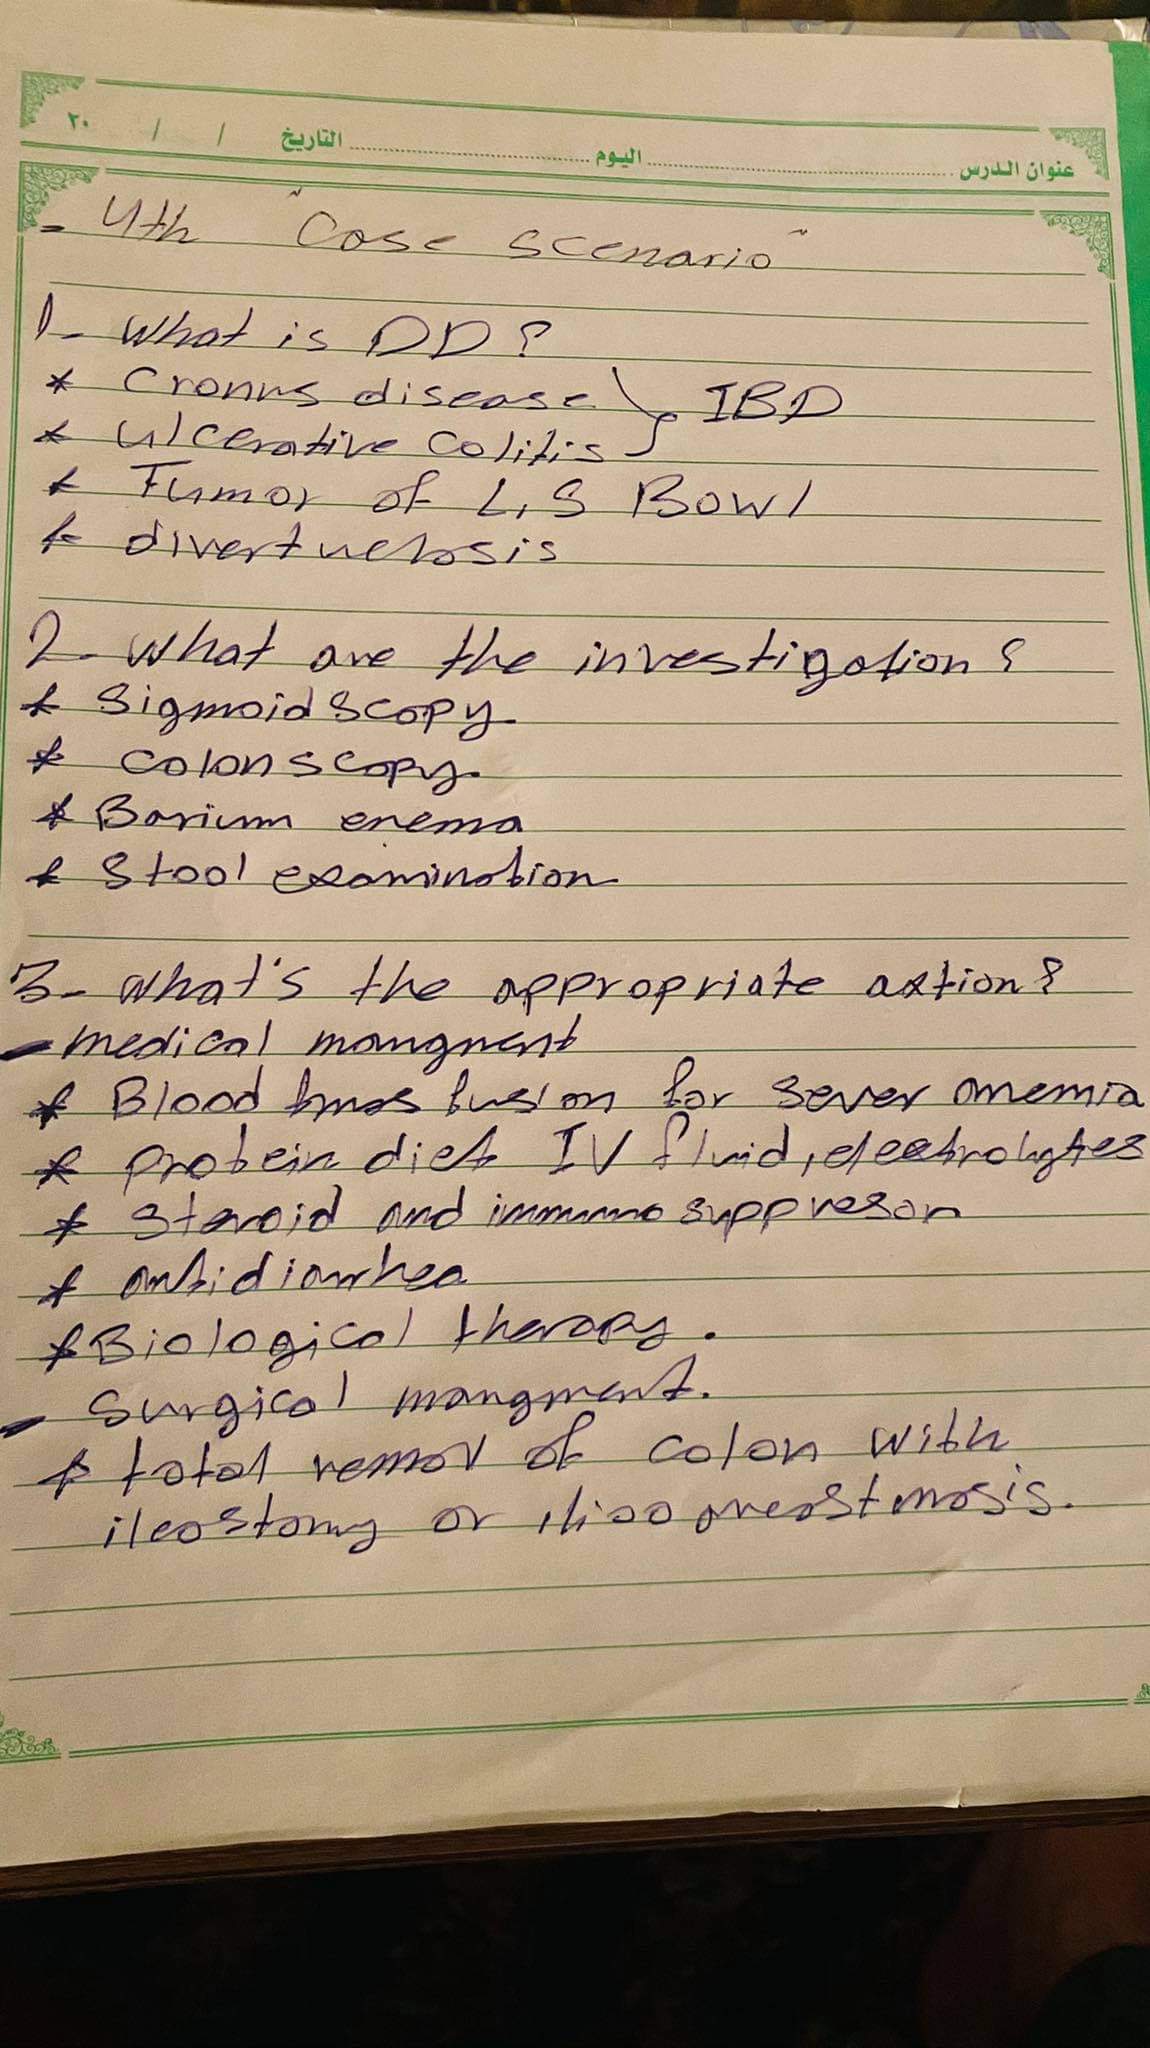 عنوان الدرس اليوم التاريخ / / ٢٠
- 4th "Case scenario"
1- What is DD?
* Cronhs disease } IBD
* ulcerative colitis
* Tumor of L, S Bowl
* diverticulosis
2- What are the investigation?
* Sigmoidscopy
* colonscopy.
* Barium enema
* Stool examination
3- What's the appropriate action?
- medical mangment
* Blood transfusion for sever anemia
* protein diet IV fluid, electrolytes
* Steroid and immunosuppreson
* antidiarrhea
* Biological therapy.
- Surgical mangment.
* total remov of colon with
ileostomy or